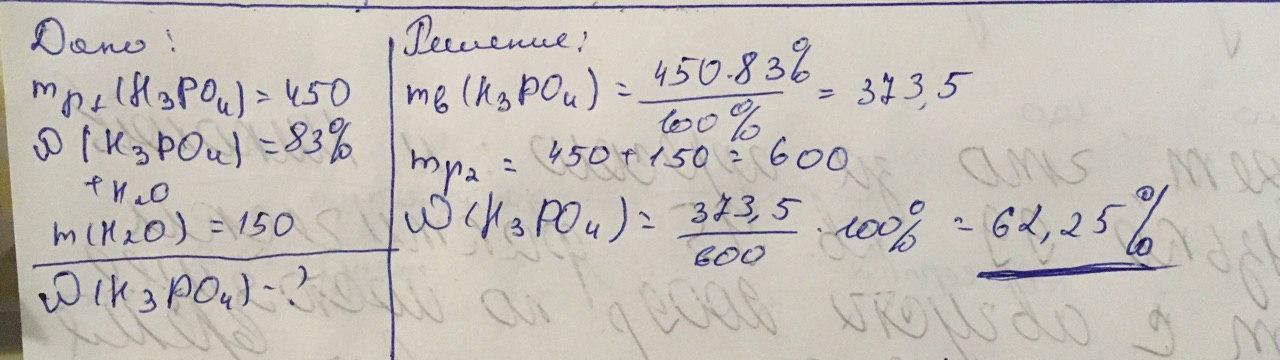 Дано:
mр1(H3PO4) = 450
ω(H3PO4) = 83%
+ H2O
m(H2O) = 150
ω(H3PO4) - ?
Решение:
mв(H3PO4) = 450·83% / 100% = 373,5
mр2 = 450 + 150 = 600
ω(H3PO4) = 373,5 / 600 · 100% = 62,25%